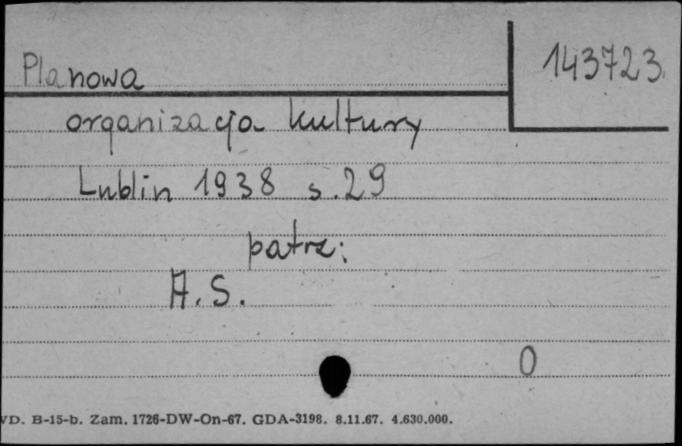 Planowa
143723.
organizacja kultury
Lublin 1938 s. 29
patrz:
A. S.
0
VD. B-15-b. Zam. 1726-DW-On-67. GDA-3198. 8.11.67. 4.630.000.